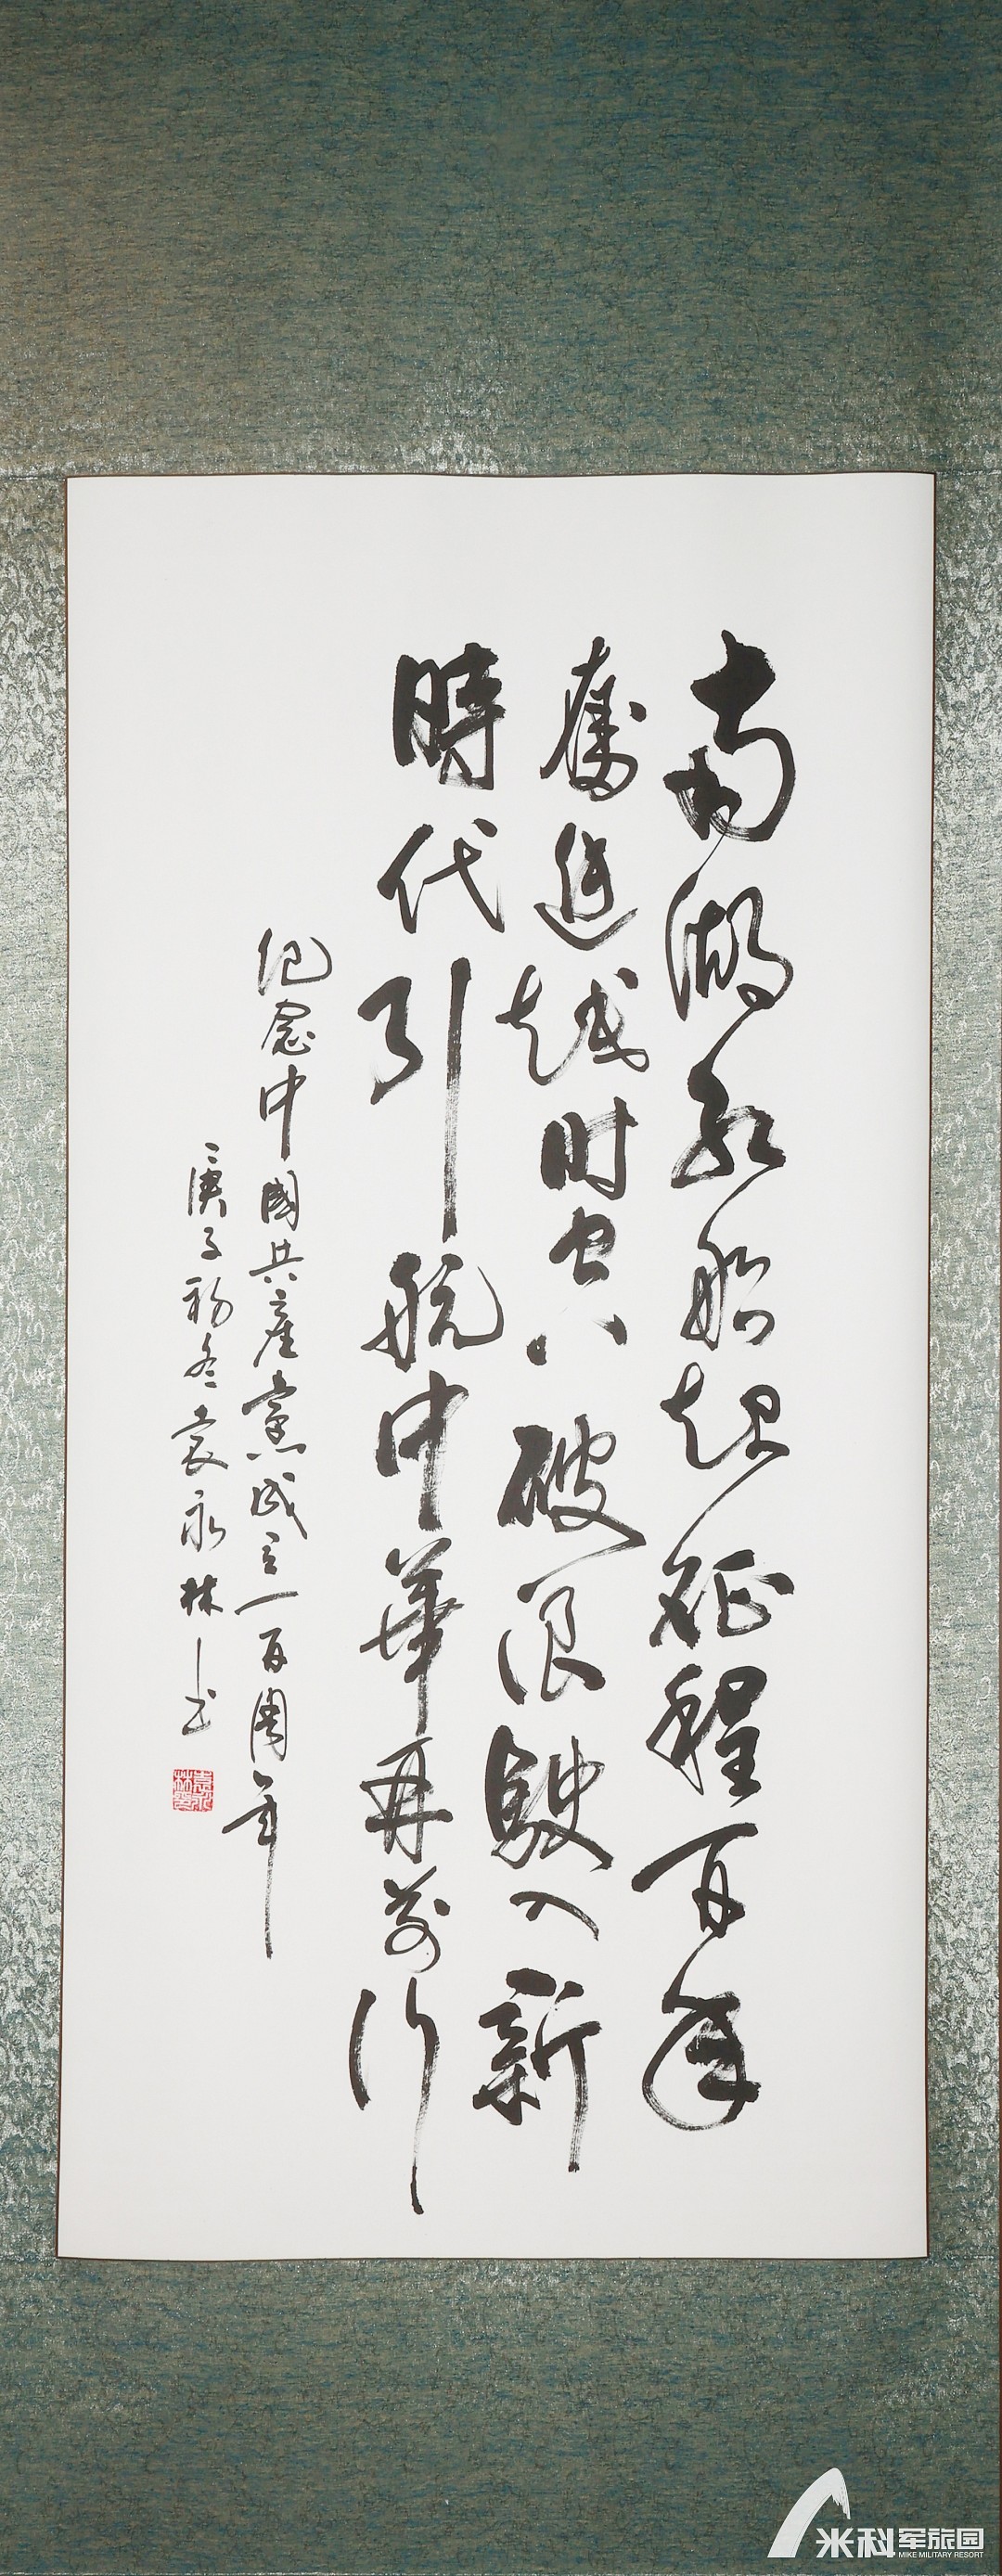 南湖红船起征程百年
奮進越时空破浪駛入新
時代引航中華再前行
纪念中國共產党成立一百周年
庚子初冬袁永林书
袁永林印
米科军旅园
MIKE MILITARY RESORT